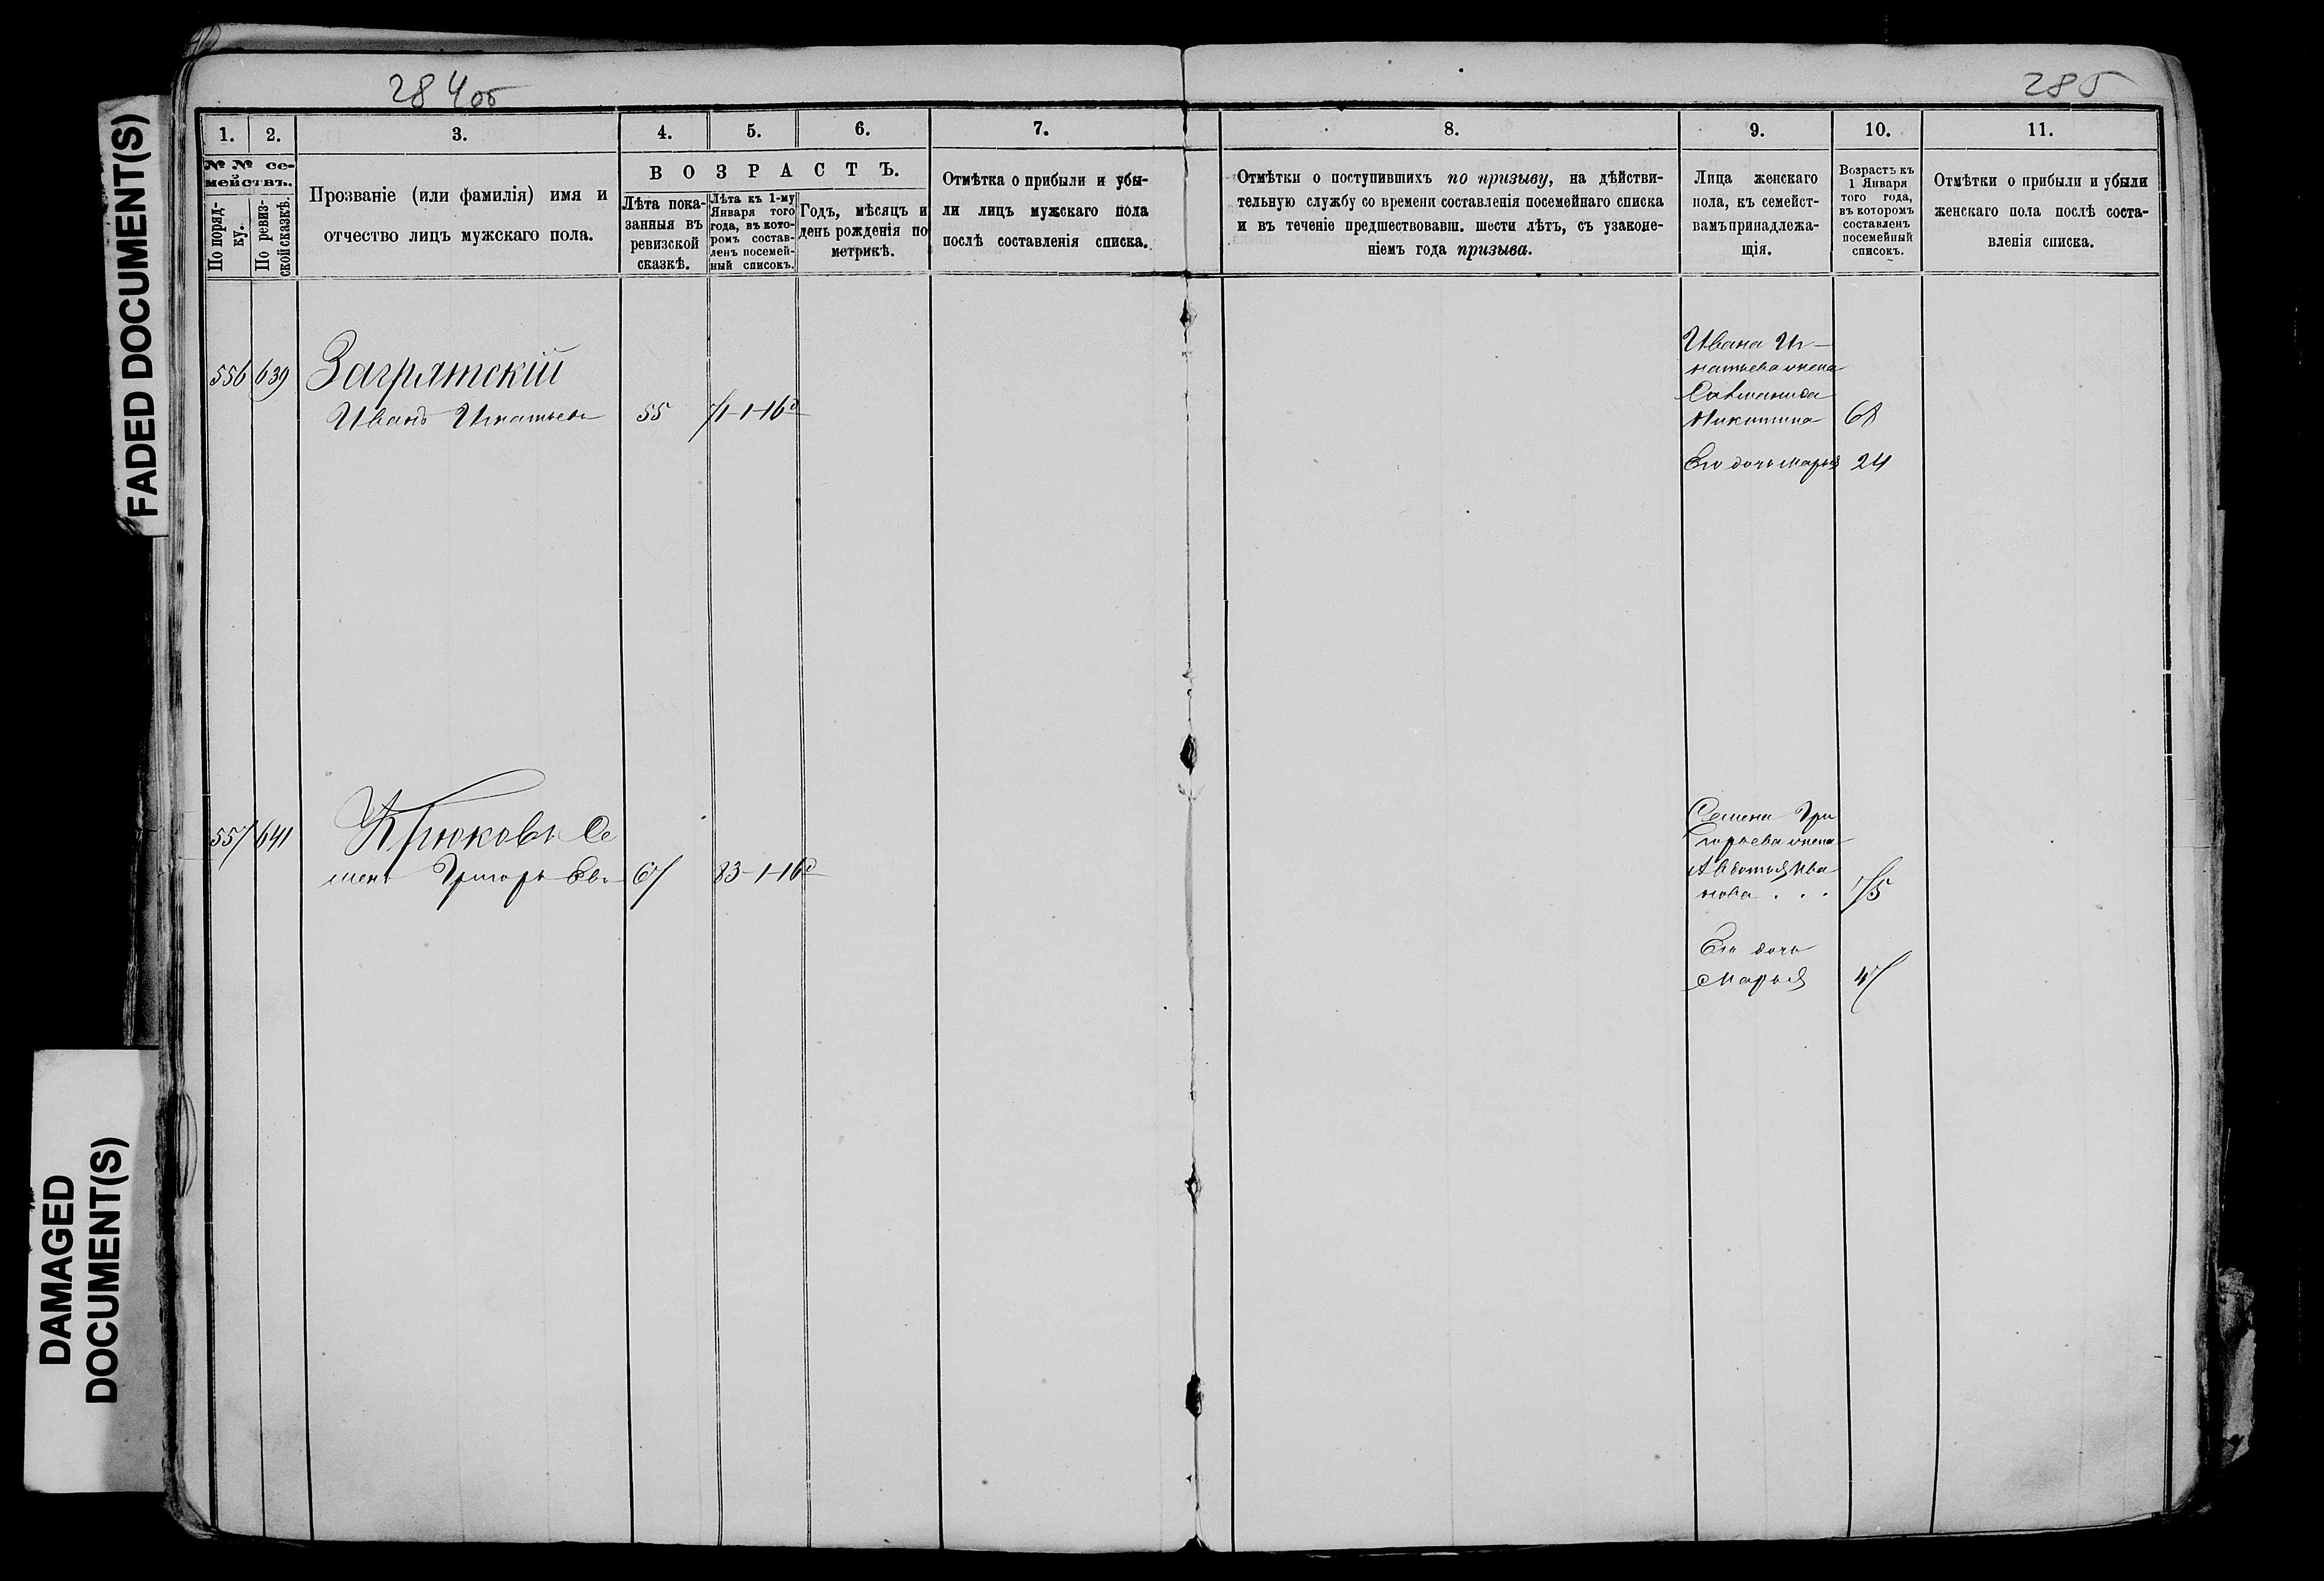 284 об
285
FADED DOCUMENT(S)
DAMAGED
DOCUMENT(S)
1.
2.
3.
4.
5.
6.
7.
8.
9.
10.
11.
№ № се-
мействъ.
По поряд-
ку.
По ревиз-
ской сказкѣ.
Прозваніе (или фамилія) имя и
отчество лицъ мужскаго пола.
ВОЗРАСТЪ.
Лѣта пока-
занныя въ
ревизской
сказкѣ.
Лѣта къ 1-му
Января того
года, въ кото-
ромъ состав-
ленъ посемей-
ный списокъ.
Годъ, мѣсяцъ и
день рожденія по
метрикѣ.
Отмѣтка о прибыли и убы-
ли лицъ мужскаго пола
послѣ составленія списка.
Отмѣтки о поступившихъ по призыву, на дѣйстви-
тельную службу со времени составленія посемейнаго списка
и въ теченіе предшествовавш. шести лѣтъ, съ узаконе-
ніемъ года призыва.
Лица женскаго
пола, къ семейст-
вамъ принадлежа-
щія.
Возрастъ къ
1 Января
того года,
въ которомъ
составленъ
посемейный
списокъ.
Отмѣтки о прибыли и убыли
женскаго пола послѣ соста-
вленія списка.
556 639 Загрятскій
Иванъ Игнатьевъ 55 71-1-16
Ивана Иг-
натьева жена
Никитина 68
Его дочь Марья 24
557 641 Крюковъ Се
менъ Григорьевъ 67 83-1-16
Семена Гри
горьева жена
Авдотья Ива
нова . . . 75
Его дочь
Марья 47